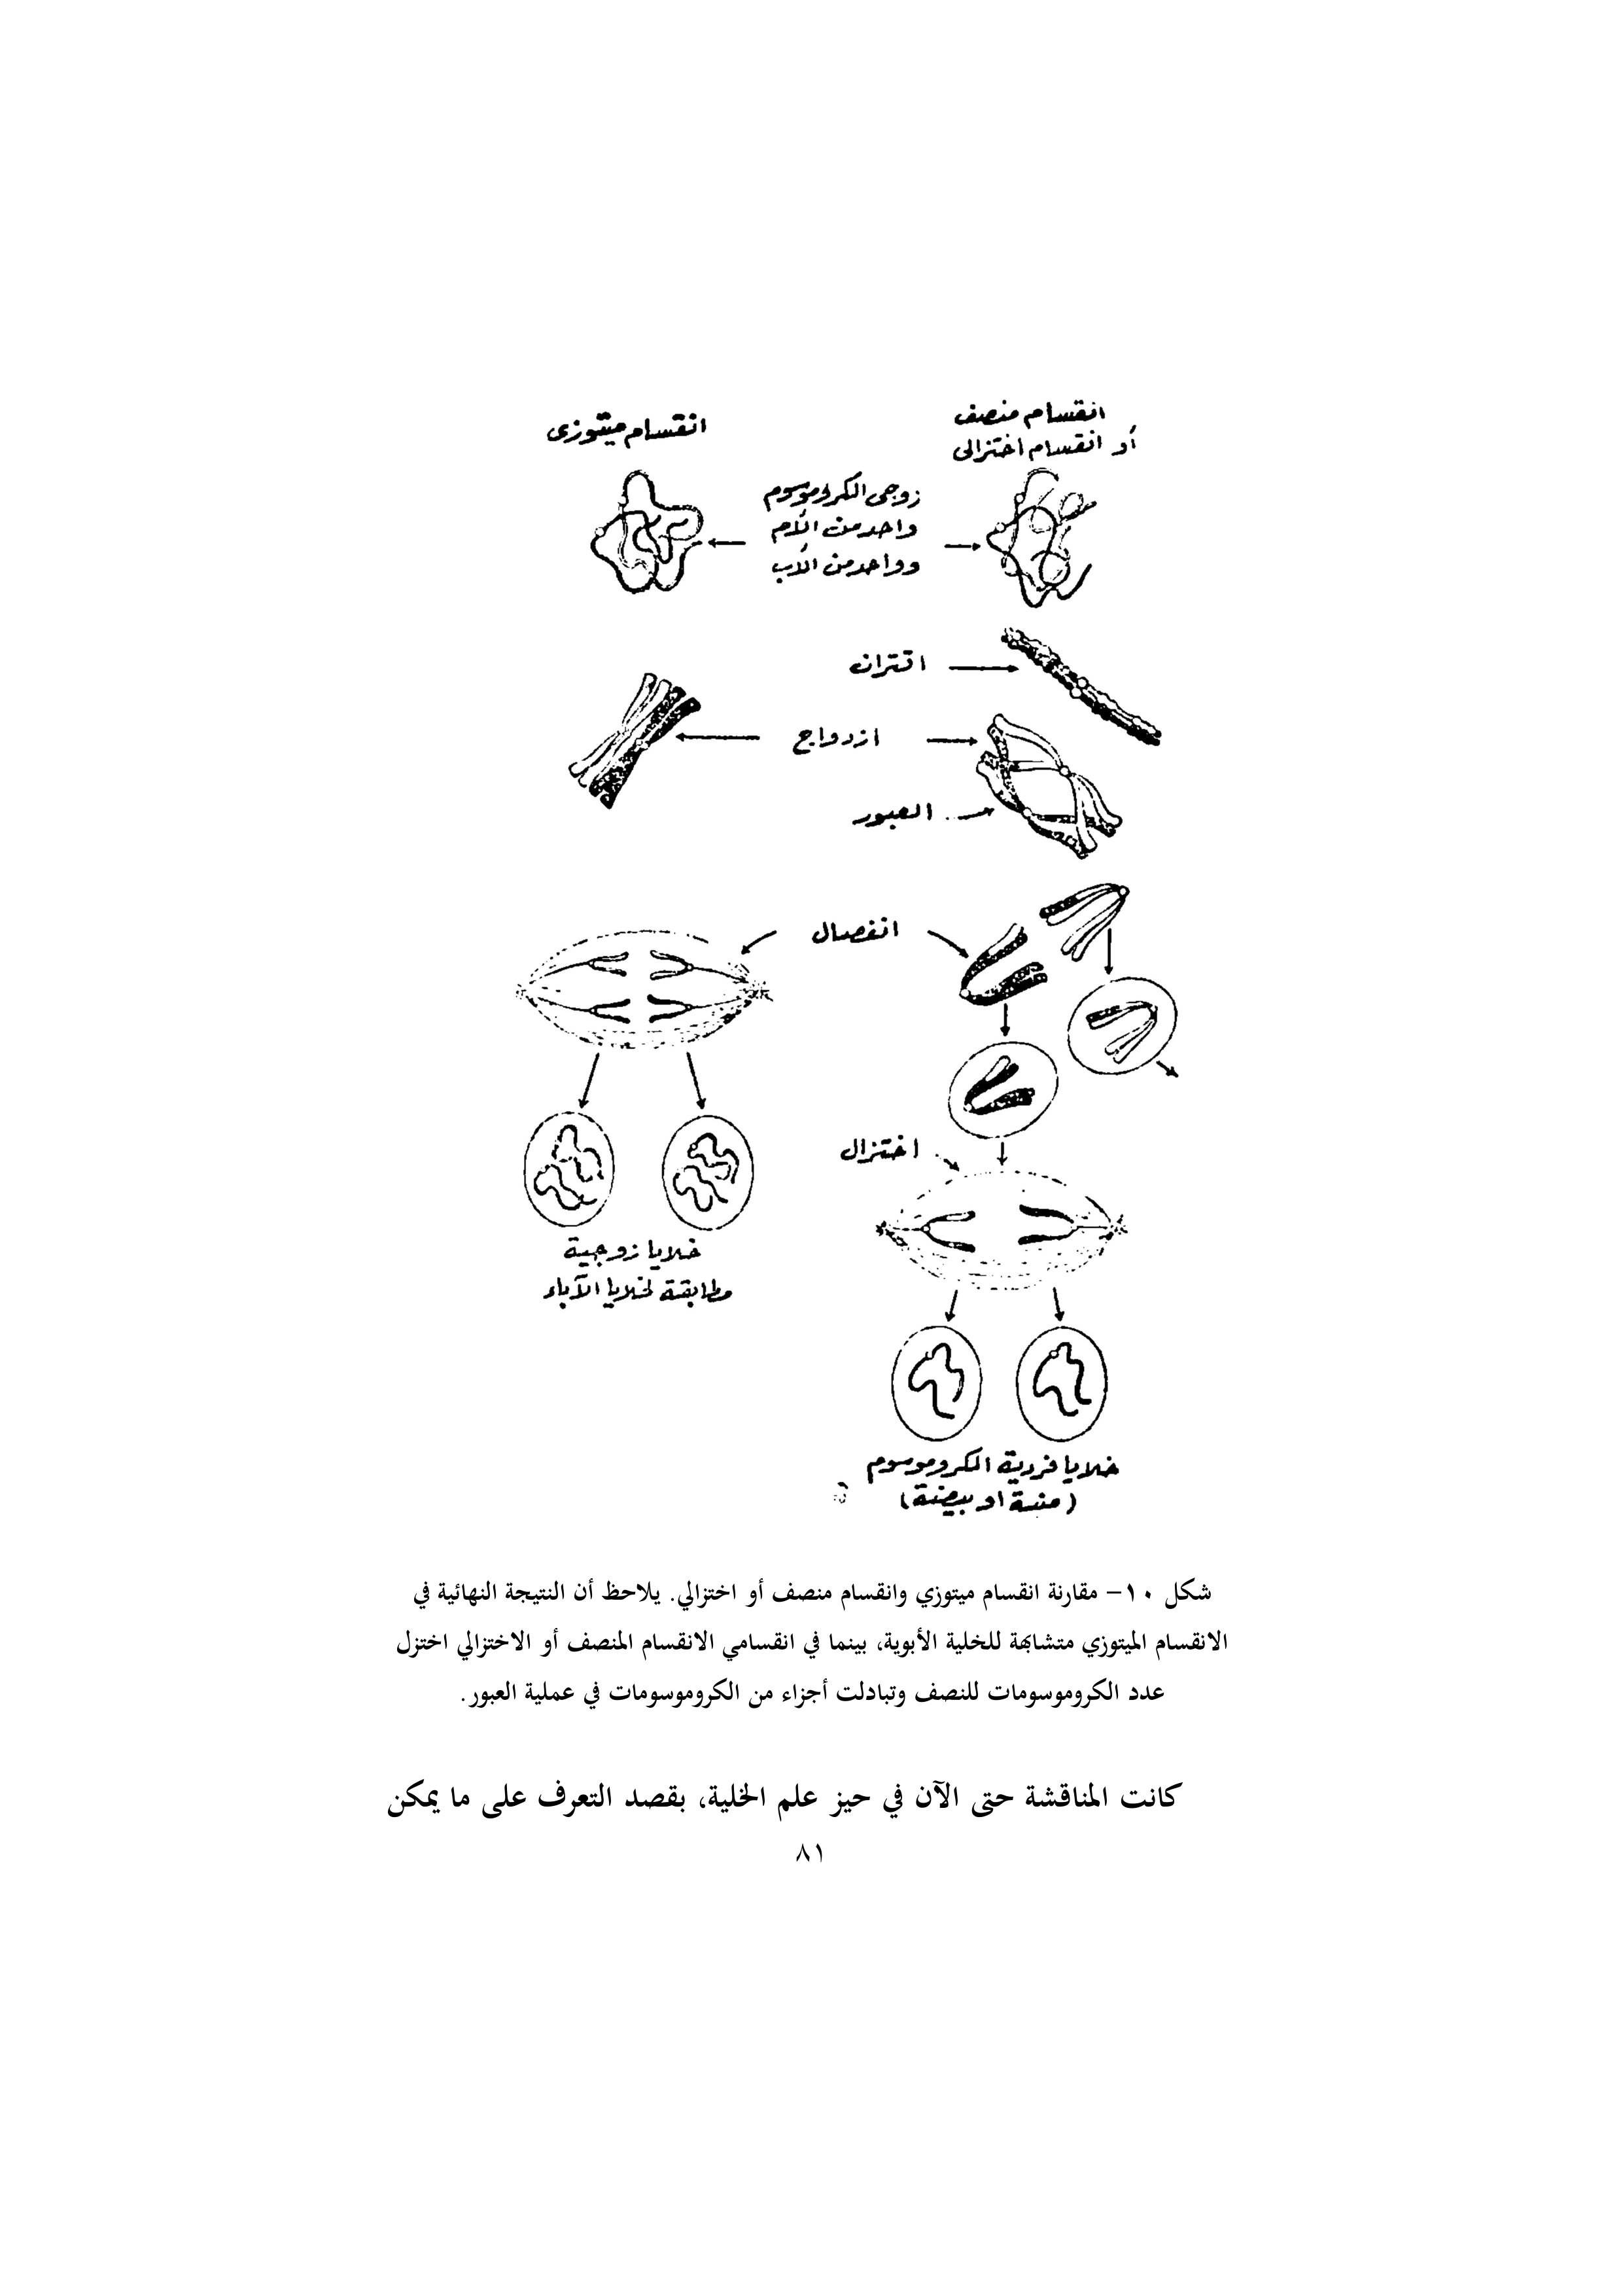 انقسام منصف
أو انقسام اختزالى
انقسام ميتوزى
زوجى الكروموسوم
واحد من الأم
وواحد من الأب
اقتران
ازدواج
العبور
انفصال
اختزال
خلايا زوجية
مطابقة لخلايا الآباء
خلايا فردية الكروموسوم
(منية او بيضة)
شكل ١٠– مقارنة انقسام ميتوزي وانقسام منصف أو اختزالي. يلاحظ أن النتيجة النهائية في
الانقسام الميتوزي متشابهة للخلية الأبوية، بينما في انقسامي الانقسام المنصف أو الاختزالي اختزل
عدد الكروموسومات للنصف وتبادلت أجزاء من الكروموسومات في عملية العبور.
كانت المناقشة حتى الآن في حيز علم الخلية، بقصد التعرف على ما يمكن
٨١